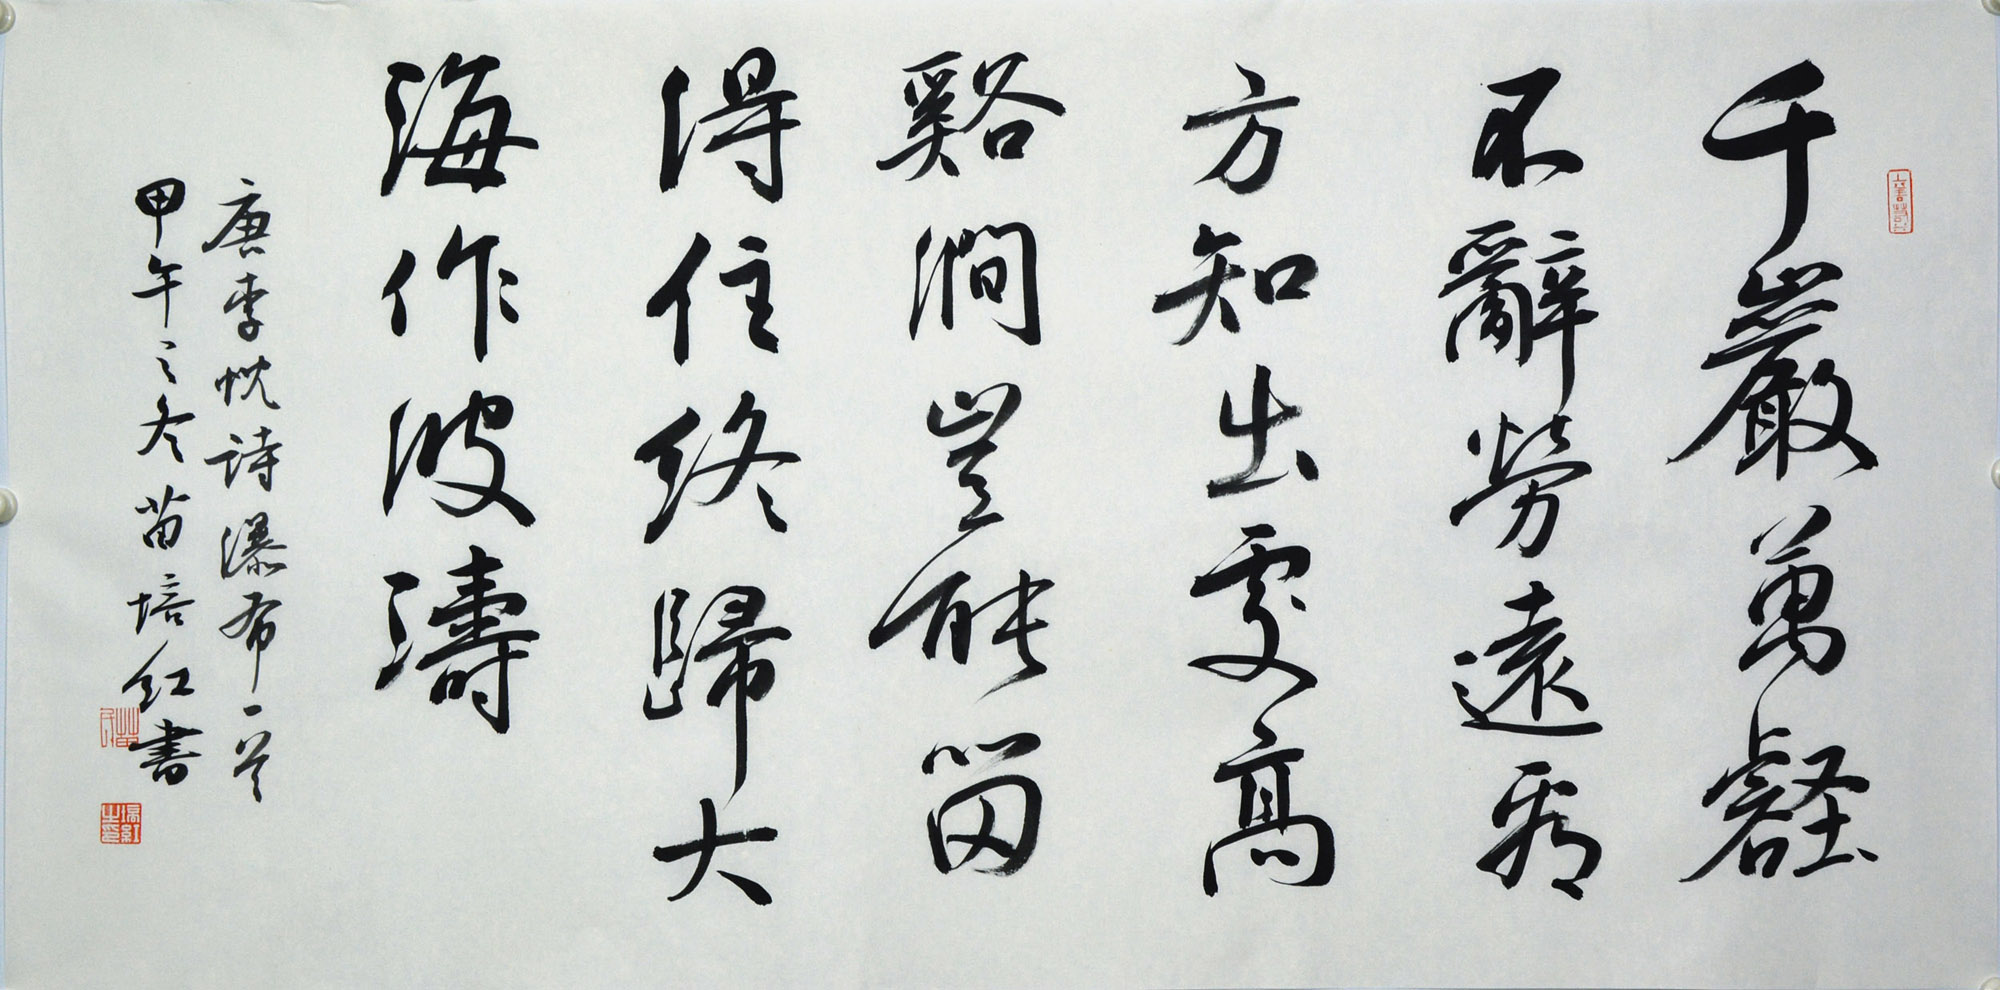 千巖萬壑
不辭勞遠看
方知出處高
谿澗豈能留
得住終歸大
海作波濤
唐李忱詩瀑布一首
甲午之冬苗培红書